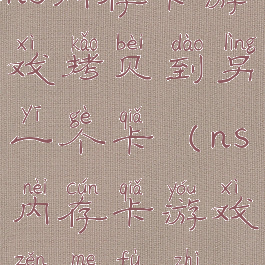 xì kǎo bèi dào lìng
戏拷贝到另
yī gè qiǎ
一个卡 (ns
nèi cún qiǎ yóu xì
内存卡游戏
zěn me fù zhì